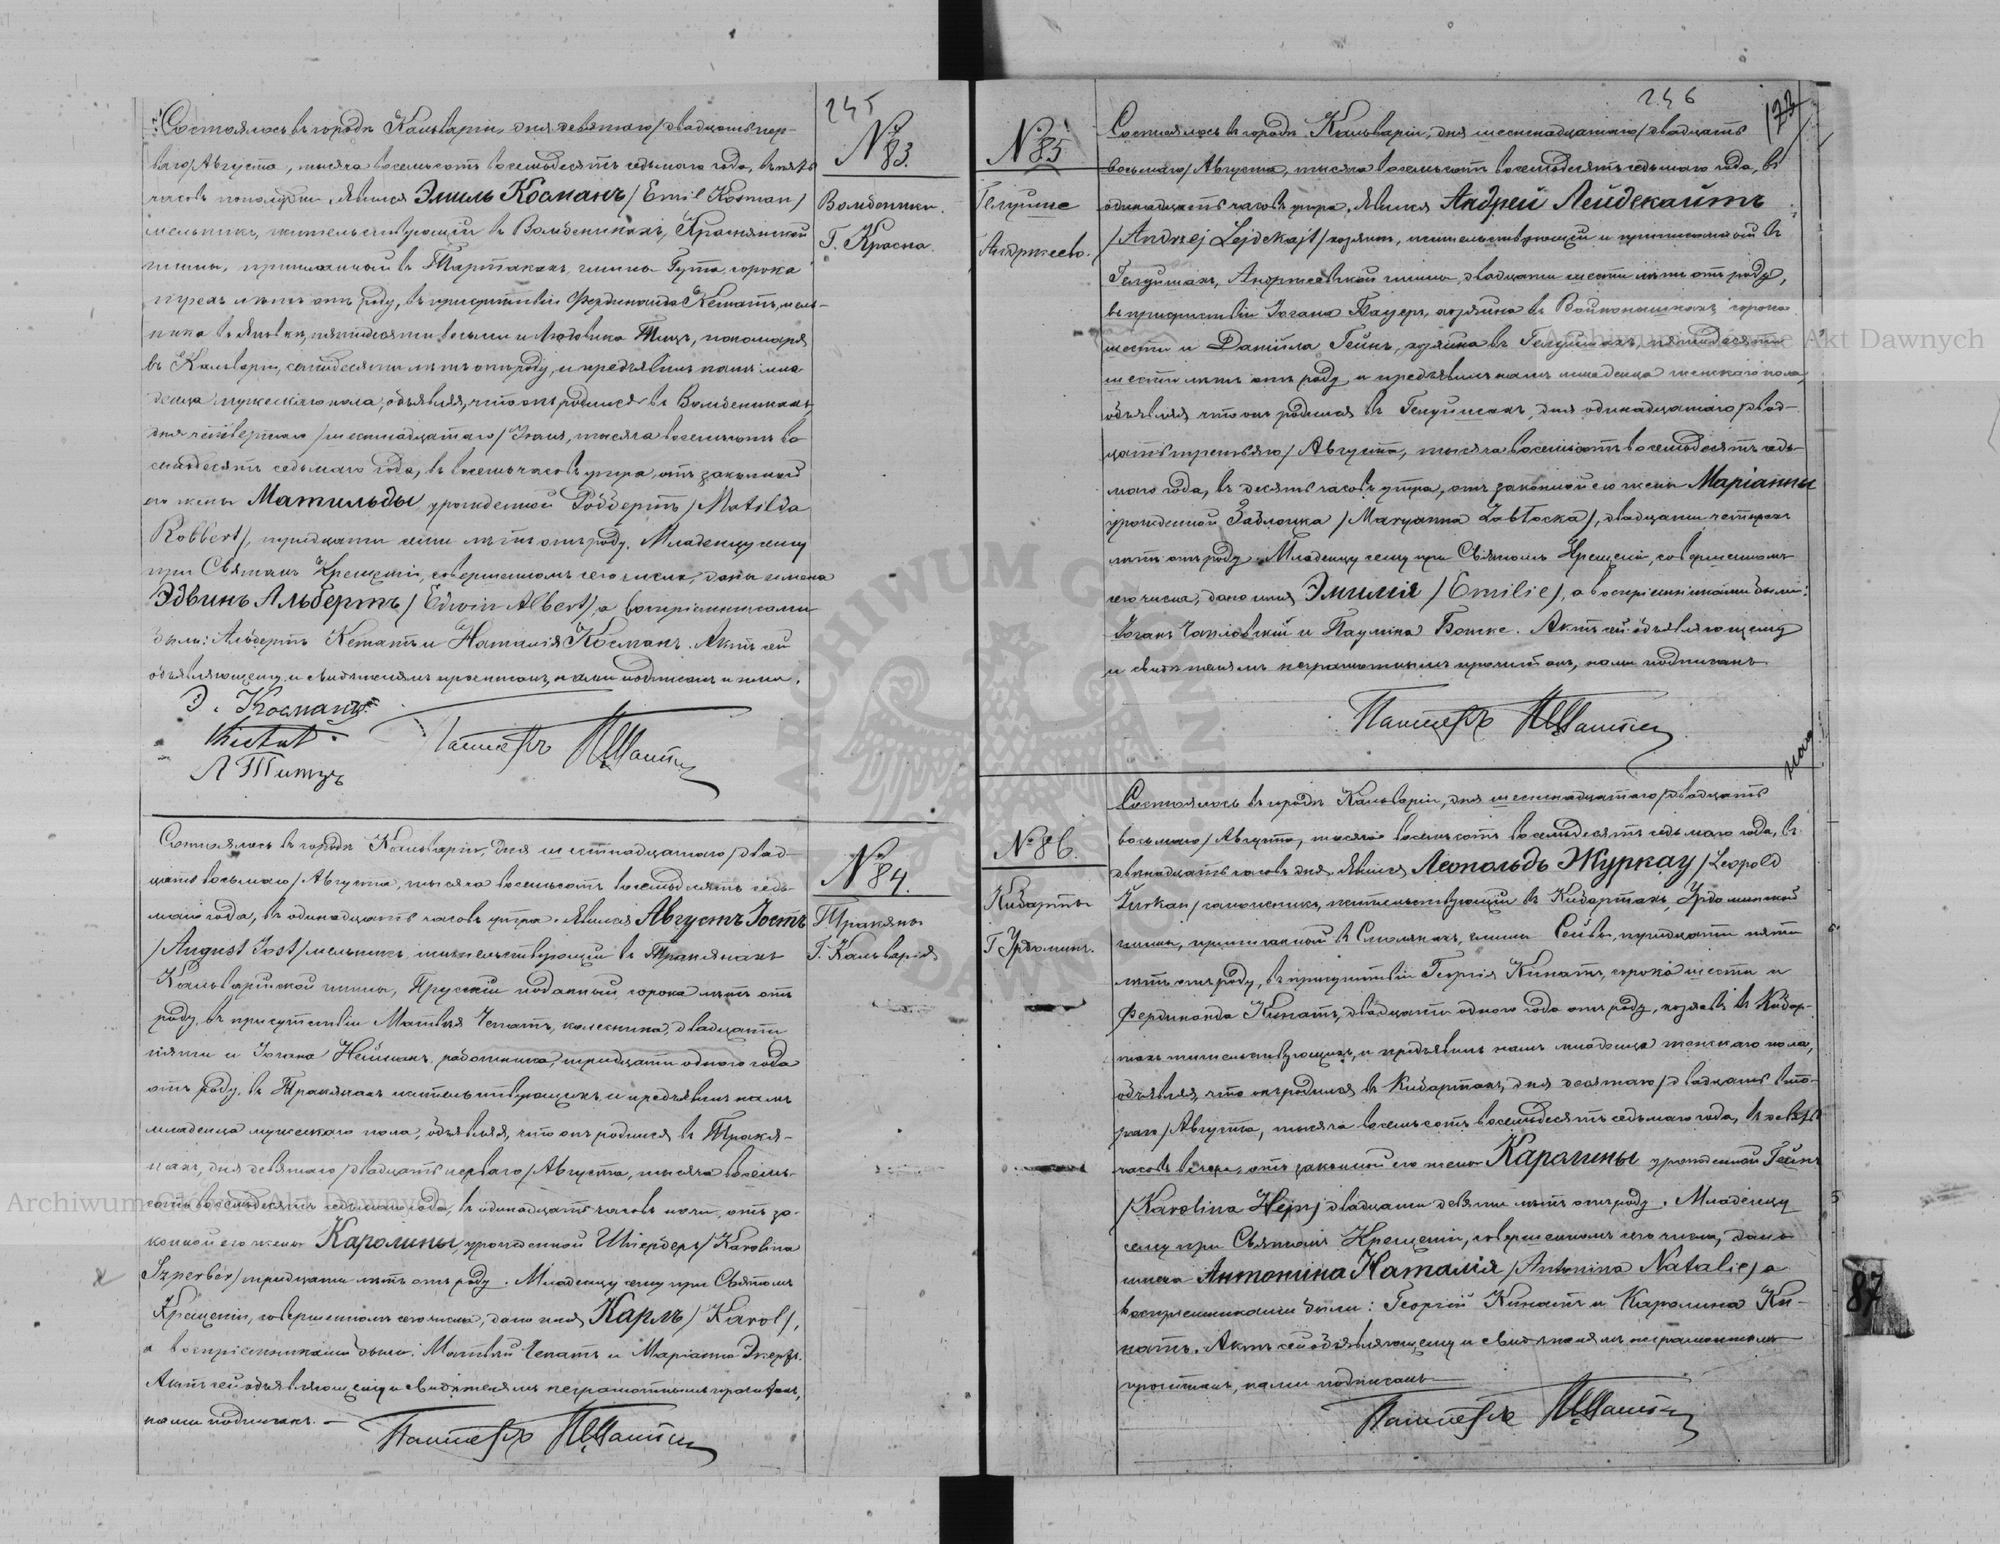 245
№ 83.
Г. Красна.
Состоялось въ городѣ Кальваріи, дня девятаго /двадцать пер-
ваго/ Августа, тысяча восемьсотъ восемьдесятъ седьмаго года, въ пять
часовъ пополудни. Явился Эмиль Косманъ / Emil Kosman /
мельникъ, жительствующій въ Краснянской
гмины, приписанный въ Тартакахъ, гмины Гута, сорока
трехъ лѣтъ отъ роду, въ присутствіи Фердинанда мель-
ника въ пятидесяти восьми и Людовика Тицъ, пономаря
въ Кальваріи, семидесяти лѣтъ отъ роду, и предъявилъ намъ мла-
денца мужескаго пола, объявляя, что онъ родился въ
дня четвертаго /шестнадцатаго/ тысяча восемьсотъ во-
семьдесятъ седьмаго года, въ восемь часовъ утра, отъ законной
его жены Матильды урожденной Роббертъ / Matilda
Robbert/, тридцати семи лѣтъ отъ роду. Младенцу сему
при Святомъ Крещеніи, совершенномъ сего числа, даны имена
Эдвинъ Альбертъ / Edwin Albert/ а воспріемниками
были: Альбертъ и Наталія Косманъ. Актъ сей
объявляющему и свидѣтелямъ прочитанъ, нами подписанъ и ими.
Э. Косманъ
Л Титцъ
Пасторъ
№ 84.
Тракяны
Г. Кальварія
Состоялось въ городѣ Кальваріи, дня шестнадцатаго /двад-
цать восьмаго/ Августа, тысяча восемьсотъ восемьдесятъ седь-
маго года, въ одинадцать часовъ утра. Явился Августъ Іостъ
/August Jost/ мельникъ, жительствующій въ Тракянахъ
Кальварійской гмины, Прусскій подданный сорока лѣтъ отъ
роду, въ присутствіи Матвѣя колесника, двадцати
пяти и Іогана Нейманъ, работника, тридцати одного года
отъ роду, въ Тракянахъ жительствующихъ и предъявилъ намъ
младенца мужескаго пола, объявляя, что онъ родился въ Тракя-
нахъ, дня девятаго /двадцать перваго/ Августа, тысяча восемь-
сотъ восемьдесятъ седьмаго года, въ одинадцать часовъ ночи, отъ за-
конной его жены Каролины, урожденной Шперберъ / Karolina
Szperber/ тридцати лѣтъ отъ роду. Младенцу сему при Святомъ
Крещеніи, совершенномъ сего числа, дано имя Карлъ / Karol /,
а воспріемниками были: Матвѣй и Маріанна
Актъ сей объявляющему и свидѣтелямъ неграмотнымъ прочитанъ,
нами подписанъ. —
Пасторъ
246
№ 85
Состоялось въ городѣ Кальваріи, дня шестнадцатаго /двадцать
восьмаго/ Августа, тысяча восемьсотъ восемьдесятъ седьмаго года, въ
одинадцать часовъ утра, явился Андрей Лейдекайтъ
/Andrzej Lejdekajt/ хозяинъ, жительствующій и приписанный въ
двадцати шести лѣтъ отъ роду,
въ присутствіи Іогана Бауеръ, хозяина въ сорока
шести и Даніила Гейнъ, хозяина въ пятидесяти
шести лѣтъ отъ роду и предъявилъ намъ младенца женскаго пола,
объявляя что онъ родился въ дня одинадцатаго /двад-
цать третьяго/ Августа, тысяча восемьсотъ восемьдесятъ седь-
маго года, въ десять часовъ утра, отъ законной его жены Маріанны
урожденной Заблоцка / Maryanna Zabłocka/, двадцати четырехъ
лѣтъ отъ роду. Младенцу сему при Святомъ Крещеніи, совершенномъ
сего числа, дано имя Эмилія / Emilie /, а воспріемниками были:
Іоганъ и Паулина Актъ сей объявляющему
и свидѣтелямъ неграмотнымъ прочитанъ, нами подписанъ
Пасторъ
№ 86.
Кибарты
Состоялось въ городѣ Кальваріи, дня шестнадцатаго /двадцать
восьмаго/ Августа, тысяча восемьсотъ восемьдесятъ седьмаго года, въ
двѣнадцать часовъ дня. Явился Леопольдъ Журкау / Leopold
Żurkau/ жительствующій въ Кибартахъ, Урдоминской
гмины, приписанный въ гмины тридцати пяти
лѣтъ отъ роду, въ присутствіи Георгія Кинатъ, сорока шести и
Фердинанда Кинатъ, двадцати одного года отъ роду, хозяевъ въ Кибар-
тахъ жительствующихъ, и предъявилъ намъ младенца женскаго пола,
объявляя что онъ родился въ Кибартахъ, дня десятаго /двадцать вто-
раго/ Августа, тысяча восемьсотъ восемьдесятъ седьмаго года, въ
часовъ вечера, отъ законной его жены Каролины урожденной Гейнъ
/Karolina Hejn/ двадцати девяти лѣтъ отъ роду. Младенцу
сему при Святомъ Крещеніи, совершенномъ сего числа, даны
имена Антонина Наталія / Antonina Natalie/ а
воспріемниками были: Георгій Кинатъ и Каролина Ки-
натъ. Актъ сей объявляющему и свидѣтелямъ неграмотнымъ
прочитанъ, нами подписанъ
Пасторъ
87
Archiwum Główne Akt Dawnych
Archiwum Główne Akt Dawnych